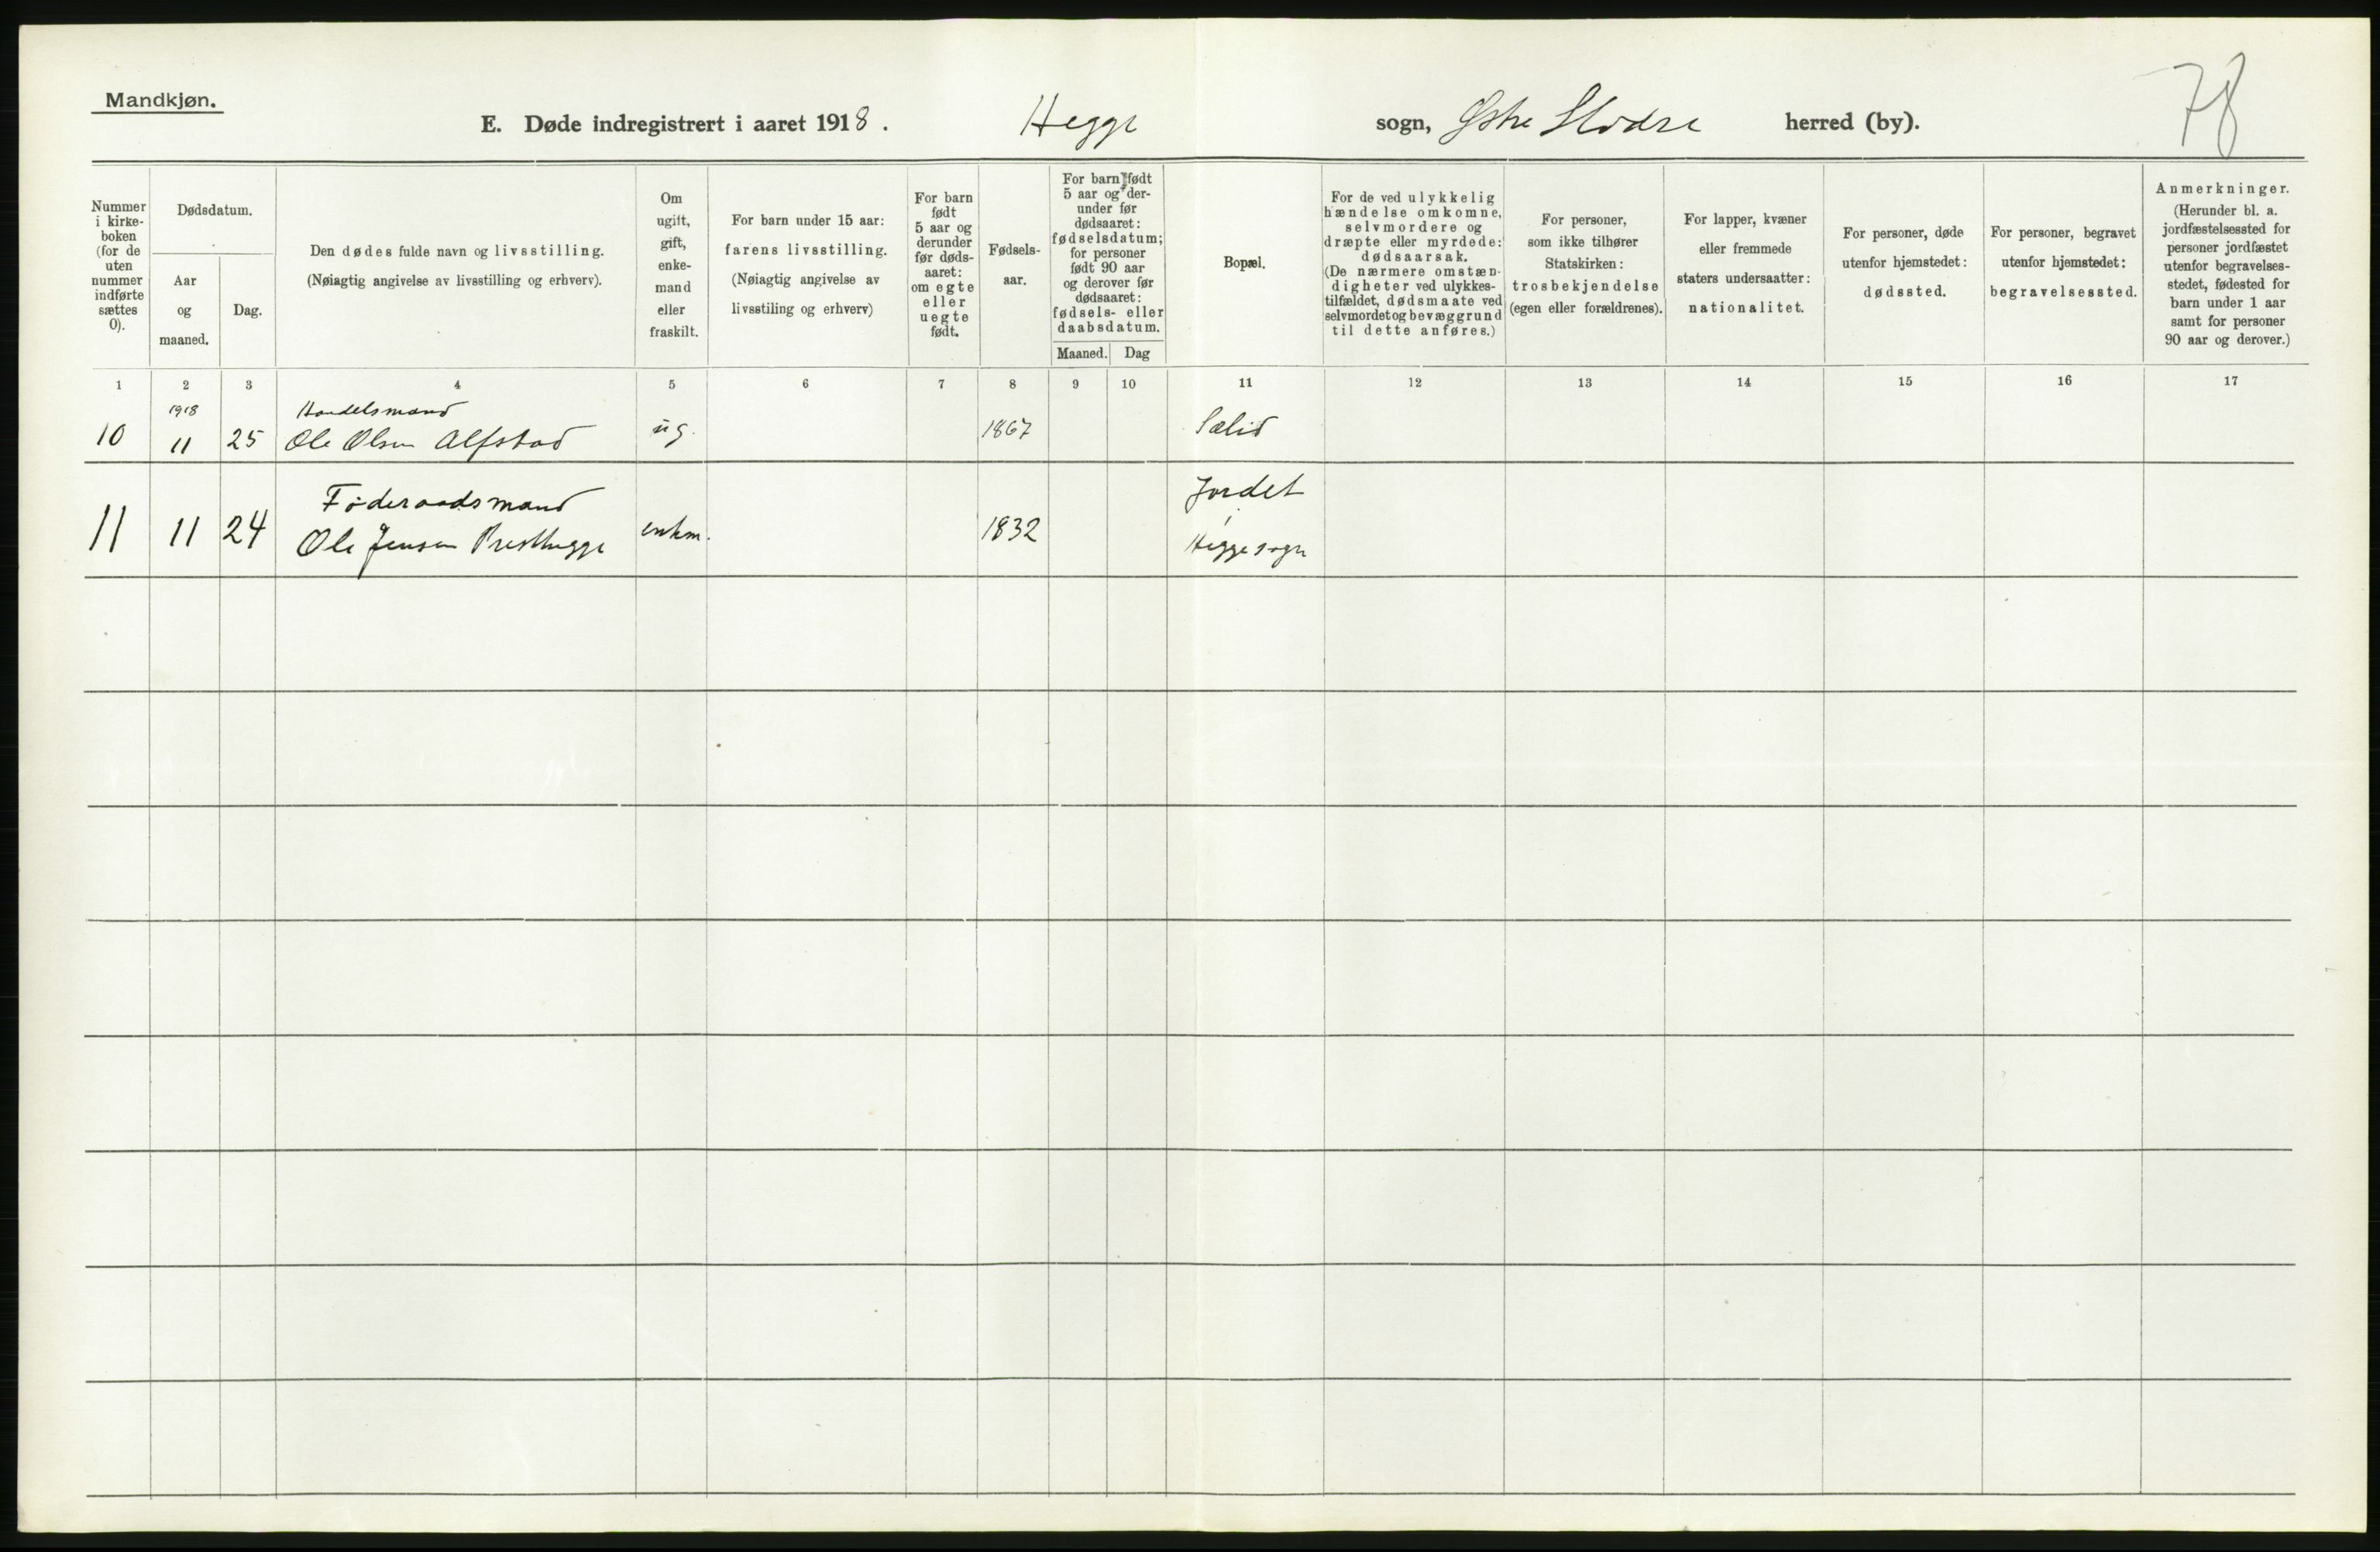 Mandkjøn.
E. Døde indregistrert i aaret 1918. Hegge sogn, Østre Slidre herred (by).
78
Nummer i kirke- boken (for de uten nummer indførte sættes 0).
Dødsdatum.
Aar og maaned.
Dag.
Den dødes fulde navn og livsstilling.
(Nøiagtig angivelse av livsstilling og erhverv).
Om ugift, gift, enke- mand eller fraskilt.
For barn under 15 aar:
farens livsstilling.
(Nøiagtig angivelse av livsstiling og erhverv)
For barn født 5 aar og derunder før døds- aaret: om egte eller uegte født.
Fødsels- aar.
For barn født 5 aar og der- under før dødsaaret: fødselsdatum; for personer født 90 aar og derover før dødsaaret: fødsels- eller daabsdatum.
Maaned. Dag
Bopæl.
For de ved ulykkelig hændelse omkomne, selvmordere og dræpte eller myrdede: dødsaarsak. (De nærmere omstæn- digheter ved ulykkes- tilfældet, dødsmaate ved selvmordet og bevæggrund til dette anføres.)
For personer, som ikke tilhører Statskirken: trosbekjendelse (egen eller forældrenes).
For lapper, kvæner eller fremmede staters undersaatter: nationalitet.
For personer, døde utenfor hjemstedet: dødssted.
For personer, begravet utenfor hjemstedet: begravelsessted.
Anmerkninger.
(Herunder bl. a. jordfæstelsessted for personer jordfæstet utenfor begravelses- stedet, fødested for barn under 1 aar samt for personer 90 aar og derover.)
1 2 3 4 5 6 7 8 9 10 11 12 13 14 15 16 17
1918 Handelsmand
10 11 25 Ole Olsen Alfstad ug. 1867 Sælid
Føderaadsmand Jordet
11 11 24 Ole Jensen Presthegge enkm. 1832 i
Heggesogn